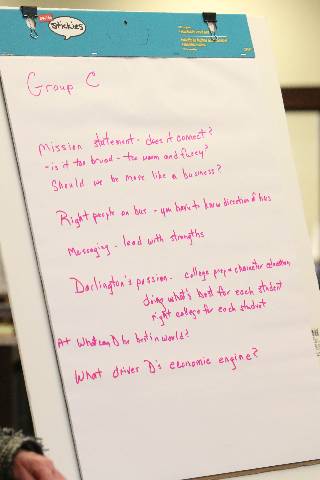 stickies
Group C
Mission statement - does it connect?
- is it too broad - too warm and fuzzy?
Should we be more like a business?
Right people on bus - you have to know direction of bus
Messaging - lead with strengths
Darlington's passion - college prep + character education
doing what's best for each student
right college for each student
At What can D be best in world?
What driver D's economic engine?